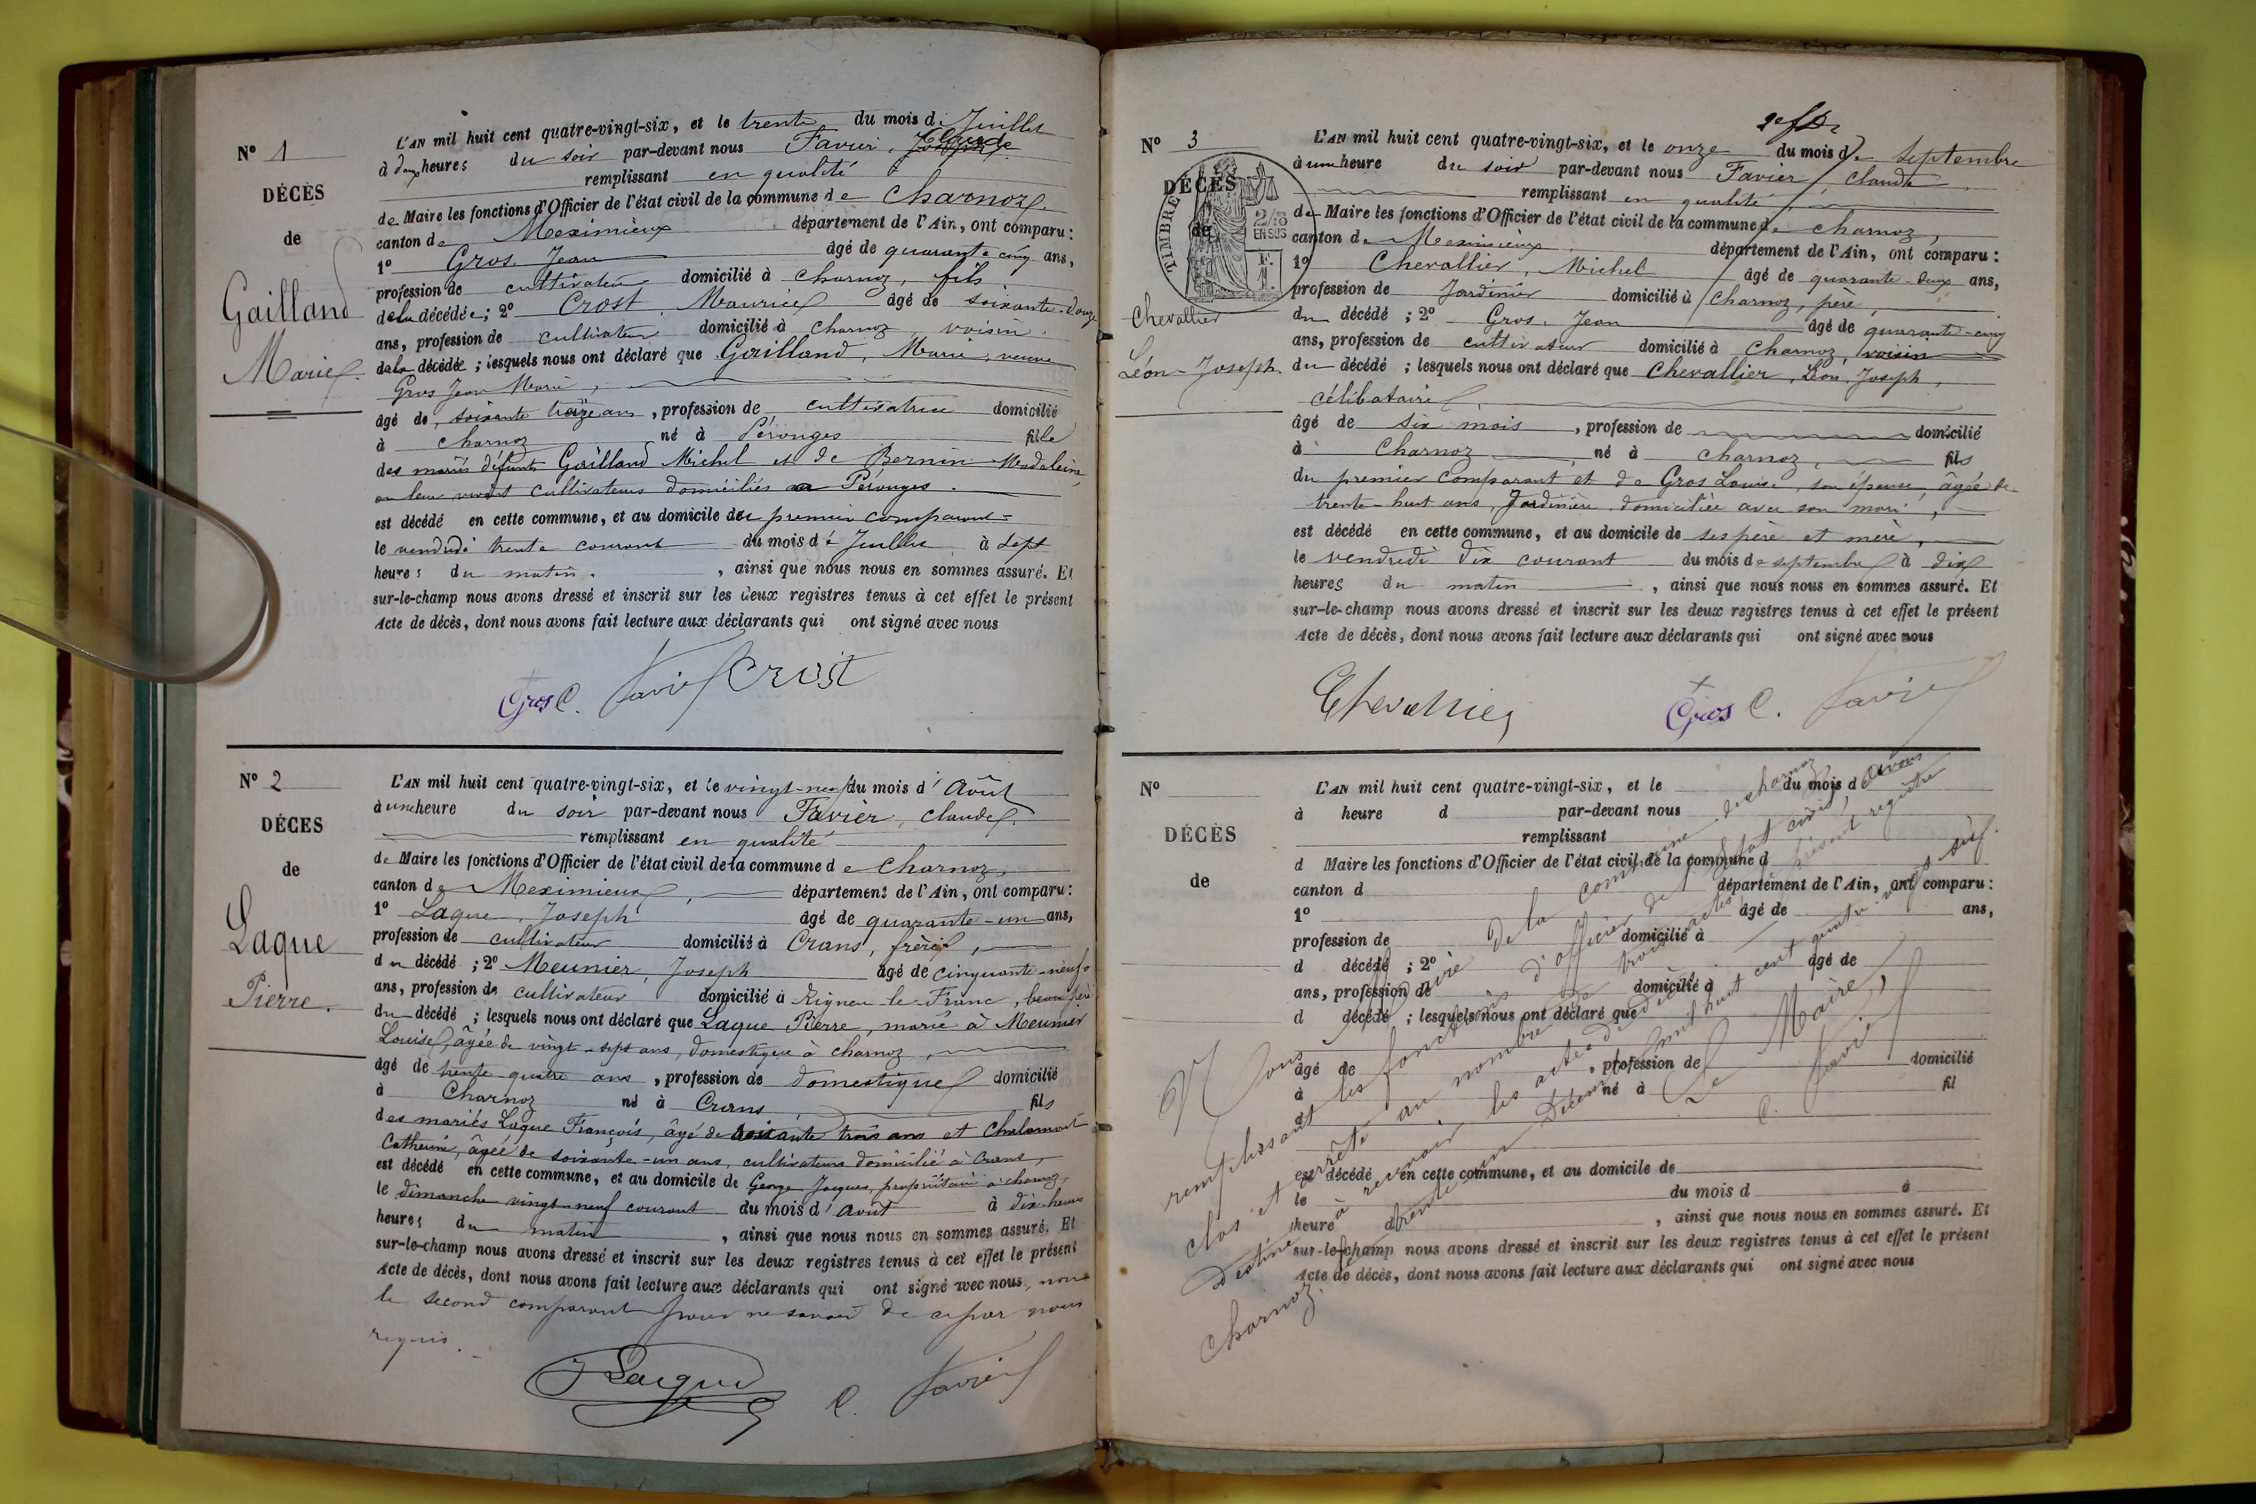 N° 1
DÉCÈS
de
Gailland
Marie
L'AN mil huit cent quatre-vingt-six, et le trente du mois de Juillet
à deux heures du soir par-devant nous Favier, Claude
remplissant en qualité
de Maire les fonctions d'Officier de l'état civil de la commune de Charnoz
canton de Meximieux département de l'Ain, ont comparu :
1° Gros Jean âgé de quarante cinq ans,
profession de cultivateur domicilié à Charnoz, fils
de la décédée ; 2° Crost, Maurice âgé de soixante-douze
ans, profession de cultivateur domicilié à Charnoz, voisin
de la décédée ; lesquels nous ont déclaré que Gailland, Marie, veuve
Gros Jean Marie,
âgé de soixante treize ans, profession de cultivatrice domicilié
à Charnoz né à Pérouges fille
des mariés défunts Gailland Michel et de Bernin Madeleine,
en leur vivant cultivateurs domiciliés à Pérouges.
est décédé en cette commune, et au domicile du premier comparant
le vendredi trente courant du mois de Juillet à sept
heures du matin, ainsi que nous nous en sommes assuré. Et
sur-le-champ nous avons dressé et inscrit sur les deux registres tenus à cet effet le présent
Acte de décès, dont nous avons fait lecture aux déclarants qui ont signé avec nous
Gros C. Favier Crost
N° 2
DÉCES
de
Laque
Pierre.
L'AN mil huit cent quatre-vingt-six, et le vingt-neuf du mois d'Août
à une heure du soir par-devant nous Favier, Claude
remplissant en qualité
de Maire les fonctions d'Officier de l'état civil de la commune de Charnoz,
canton de Meximieux, département de l'Ain, ont comparu :
1° Laque, Joseph âgé de quarante-un ans,
profession de cultivateur domicilié à Crans, frère,
du décédé ; 2° Meunier, Joseph âgé de cinquante-neuf
ans, profession de cultivateur domicilié à Rigneu-le-Franc, beau père
du décédé ; lesquels nous ont déclaré que Laque Pierre, marié à Meunier
Louise, âgée de vingt-sept ans, domestique à Charnoz,
âgé de trente-quatre ans, profession de domestique domicilié
à Charnoz né à Crans, fils
des mariés Laque François, âgé de soixante trois ans et Chalamont
Catherine, âgée de soixante-un ans, cultivateurs domicilié à Crans,
est décédé en cette commune, et au domicile de George Jacques, propriétaire à Charnoz,
le dimanche vingt-neuf courant du mois d'Août à dix heures
heures du matin, ainsi que nous nous en sommes assuré. Et
sur-le-champ nous avons dressé et inscrit sur les deux registres tenus à cet effet le présent
Acte de décès, dont nous avons fait lecture aux déclarants qui ont signé avec nous, non
le second comparant pour ne savoir de ce par nous
requis.
J Laque C. Favier
N° 3
DÉCÈS
de
TIMBRE
2/10
EN SUS
Chevallier
Léon-Joseph.
L'AN mil huit cent quatre-vingt-six, et le onze du mois de Septembre
à une heure du soir par-devant nous Favier, Claude,
remplissant en qualité,
de Maire les fonctions d'Officier de l'état civil de la commune de Charnoz,
canton de Meximieux département de l'Ain, ont comparu :
1° Chevallier, Michel âgé de quarante-deux ans,
profession de Jardinier domicilié à Charnoz, père,
du décédé ; 2° Gros, Jean âgé de quarante-cinq
ans, profession de cultivateur domicilié à Charnoz, voisin
du décédé ; lesquels nous ont déclaré que Chevallier, Léon, Joseph,
célibataire,
âgé de six mois, profession de domicilié
à Charnoz, né à Charnoz, fils
du premier comparant et de Gros Louise, son épouse, âgée de
trente-huit ans, Jardinière, domiciliée avec son mari,
est décédé en cette commune, et au domicile de ses père et mère,
le vendredi dix courant du mois de septembre à dix
heures du matin, ainsi que nous nous en sommes assuré. Et
sur-le-champ nous avons dressé et inscrit sur les deux registres tenus à cet effet le présent
Acte de décès, dont nous avons fait lecture aux déclarants qui ont signé avec nous
Chevallier Gros C. Favier
N°
DÉCÈS
de
L'AN mil huit cent quatre-vingt-six, et le du mois d
à heure d par-devant nous
remplissant
d Maire les fonctions d'Officier de l'état civil de la commune d
canton d département de l'Ain, ont comparu :
1° âgé de ans,
profession de domicilié à
d décédé ; 2° âgé de
ans, profession de domicilié à
d décédé ; lesquels nous ont déclaré que
âgé de, profession de domicilié
à né à fil
d
est décédé en cette commune, et au domicile de
le du mois d à
heure d, ainsi que nous nous en sommes assuré. Et
sur-le-champ nous avons dressé et inscrit sur les deux registres tenus à cet effet le présent
Acte de décès, dont nous avons fait lecture aux déclarants qui ont signé avec nous
Nous Maire de la commune de Charnoz,
remplissant les fonctions d'officier de l'état civil, avons
clos et arrêté au nombre de trois actes, le présent registre
destiné à recevoir les actes de décès.
Charnoz, le trente un Décembre mil huit cent quatre-vingt six.
Le Maire,
C. Favier